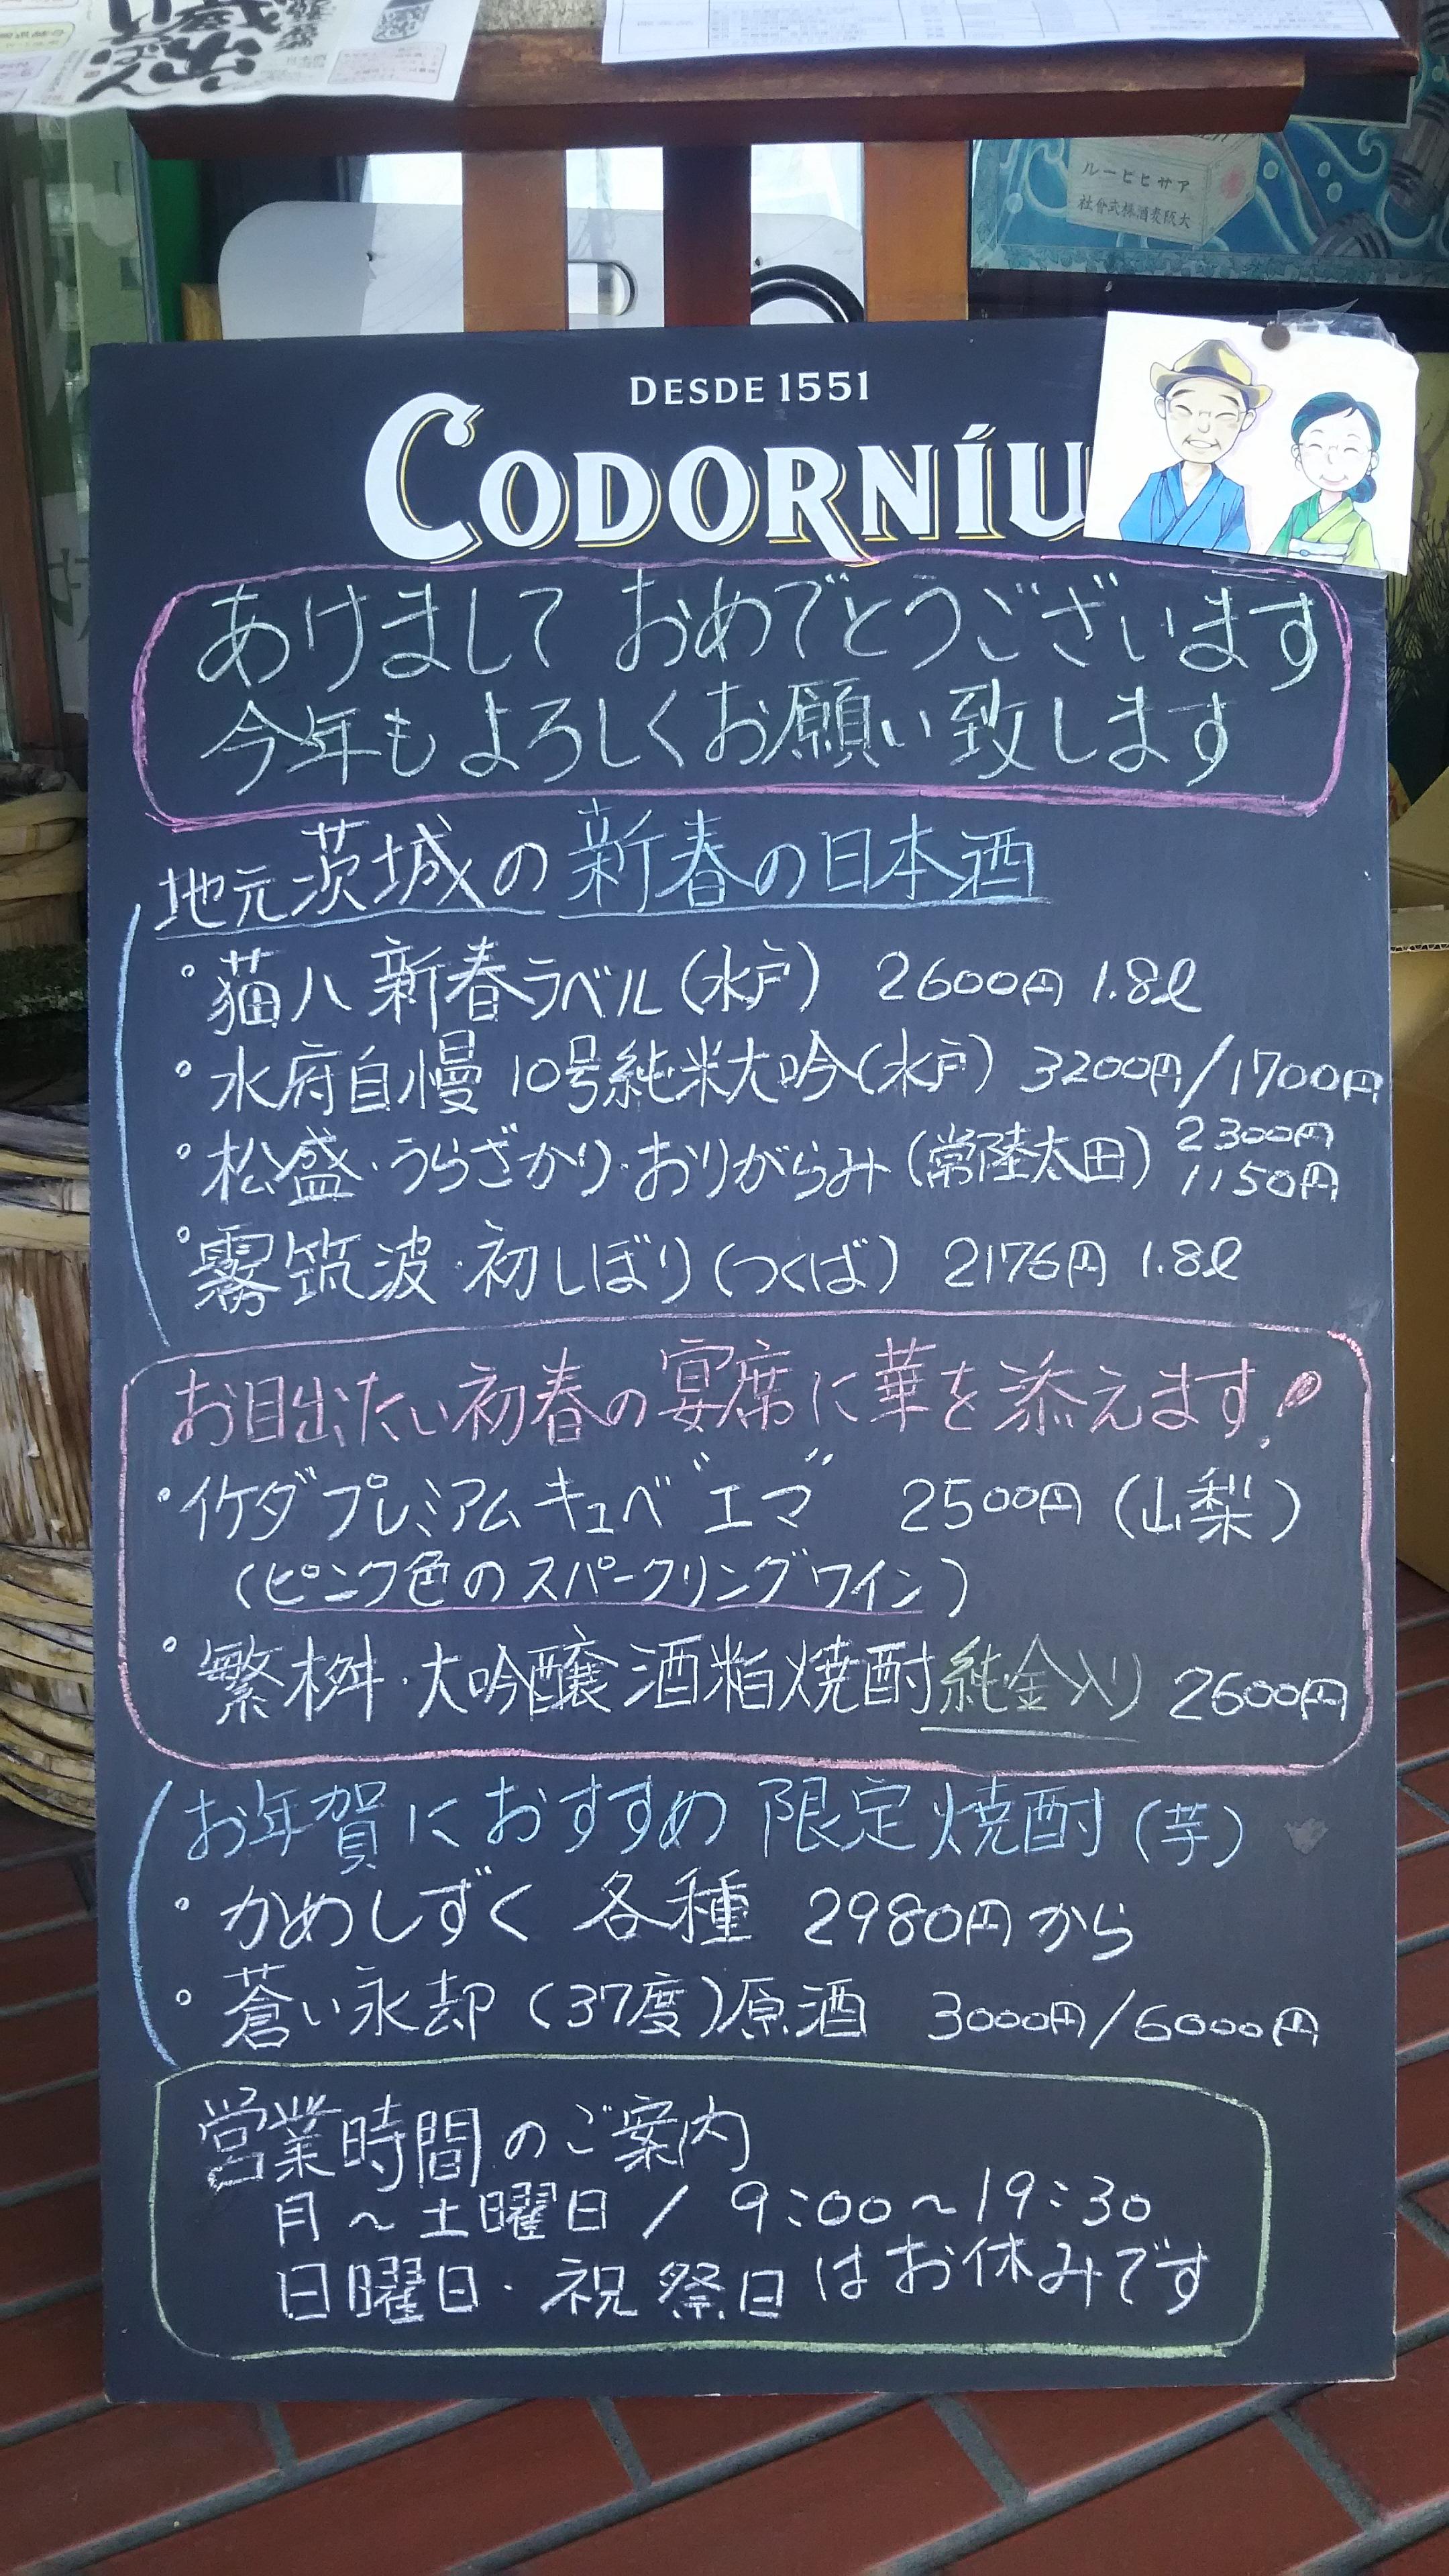 アサヒビール
大阪麦酒株式會社
DESDE 1551
CODORNÍU
あけまして おめでとうございます
今年もよろしくお願い致します
地元茨城の新春の日本酒
・猫八 新春ラベル(水戸) 2600円 1.8ℓ
・水府自慢 10号純米大吟(水戸) 3200円/1700円
・松盛・うらざかり・おりがらみ(常陸太田) 2300円
1150円
・霧筑波・初しぼり(つくば) 2176円 1.8ℓ
お目出たい初春の宴席に華を添えます!
・イケダプレミアムキュベ"エマ" 2500円(山梨)
(ピンク色のスパークリングワイン)
・繁桝・大吟醸酒粕焼酎純金入り 2600円
お年賀におすすめ 限定焼酎(芋)
・かめしずく 各種 2980円から
・蒼い永却(37度)原酒 3000円/6000円
営業時間のご案内
月～土曜日/9:00～19:30
日曜日・祝祭日はお休みです